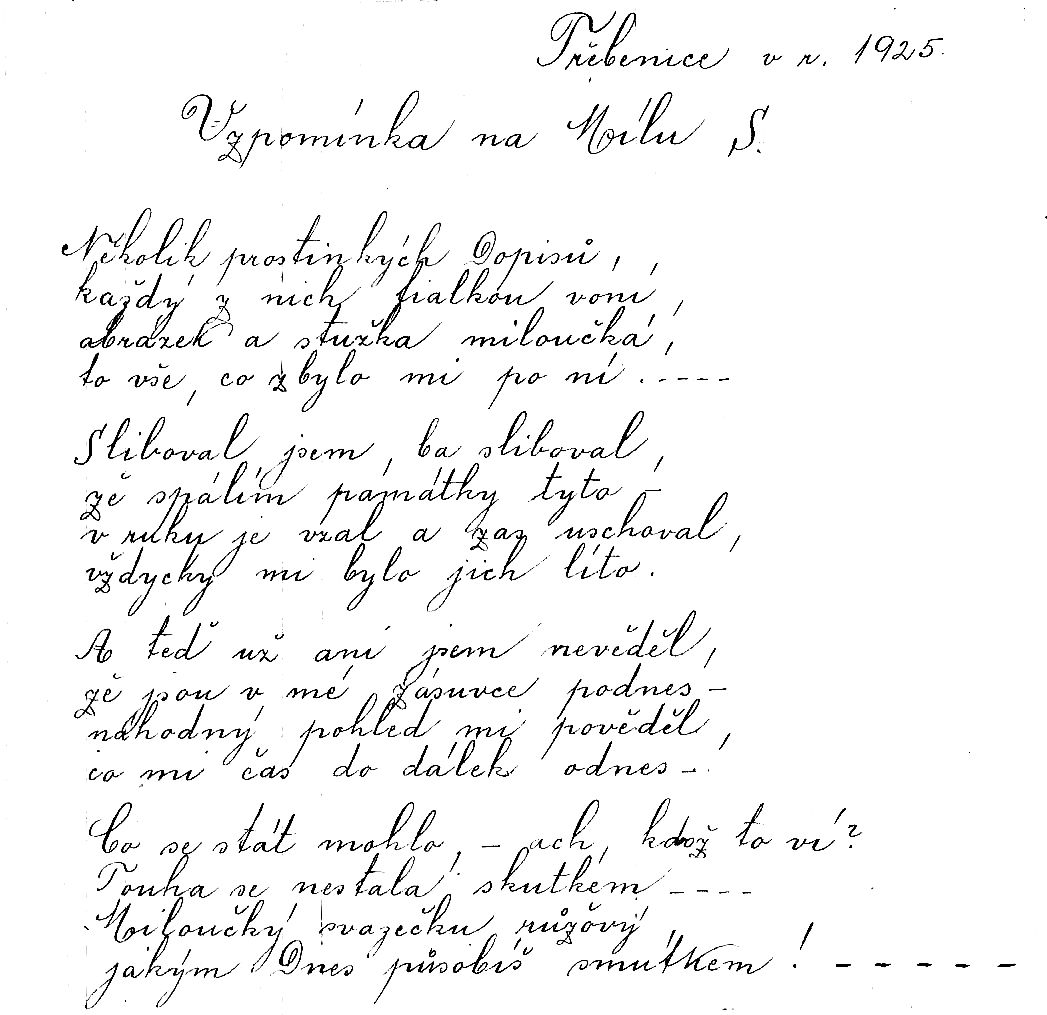 Třebenice v r. 1925.
Vzpomínka na Mílu S.
Několik prostinkých Dopisů,,
každý z nich fialkou voní,
obrázek a stužka miloučká,
to vše, co zbylo mi po ní.----
Sliboval jsem, ba sliboval,
že spálím památky tyto -
v ruku je vzal a zas uschoval,
vždycky mi bylo jich líto.
A teď už ani jsem nevěděl,
že jsou v mé zásuvce podnes -
náhodný pohled mi pověděl,
co mi čas do dálek odnes -.
Co se stát mohlo, - ach, kdož to ví?
Touha se nestala skutkem ----
Miloučký svazečku růžový,
jakým Dnes působíš smutkem! -----